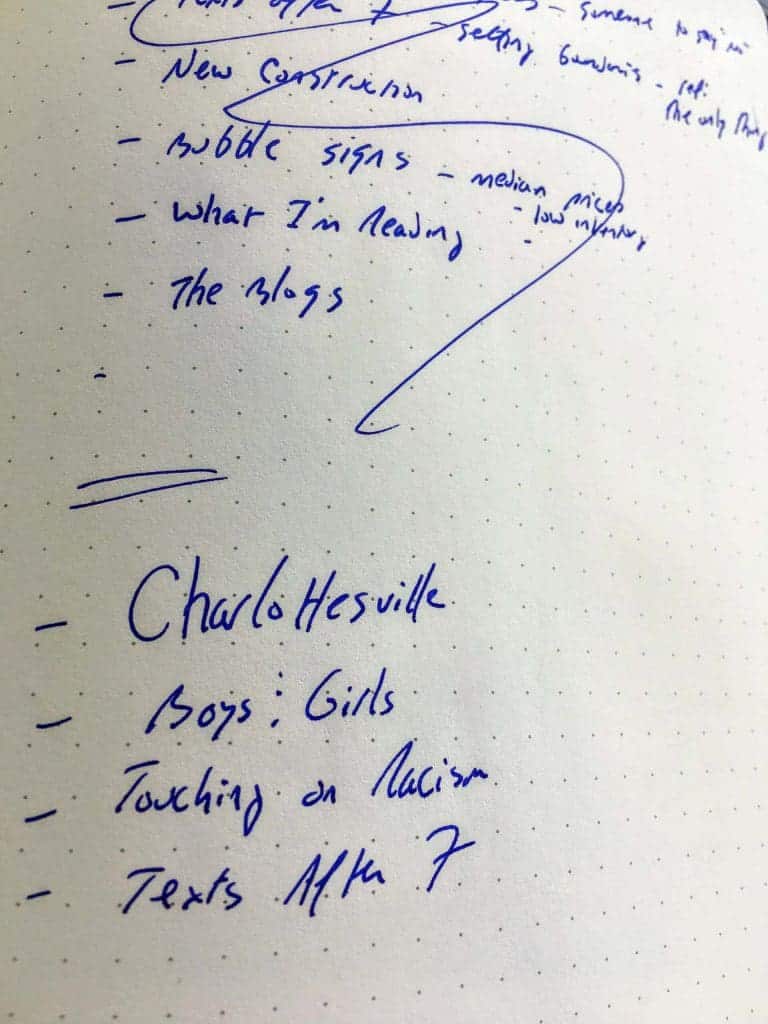 - Texts after 7 - Someone to say no
- Setting boundaries - ref:
the only thing
- New Construction
- Bubble signs - median prices
- low inventory
-
- What I'm Reading
- The Blogs
-
- Charlottesville
- Boys : Girls
- Touching on Racism
- Texts After 7